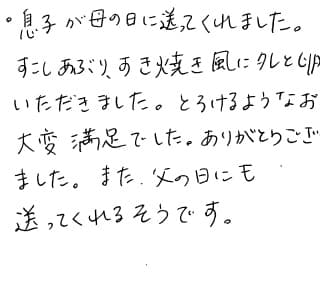 ・息子が母の日に送ってくれました。
すこしあぶり、すき焼き風にタレと卵
いただきました。とろけるようなお
大変満足でした。ありがとうござ
ました。また、父の日にも
送ってくれるそうです。